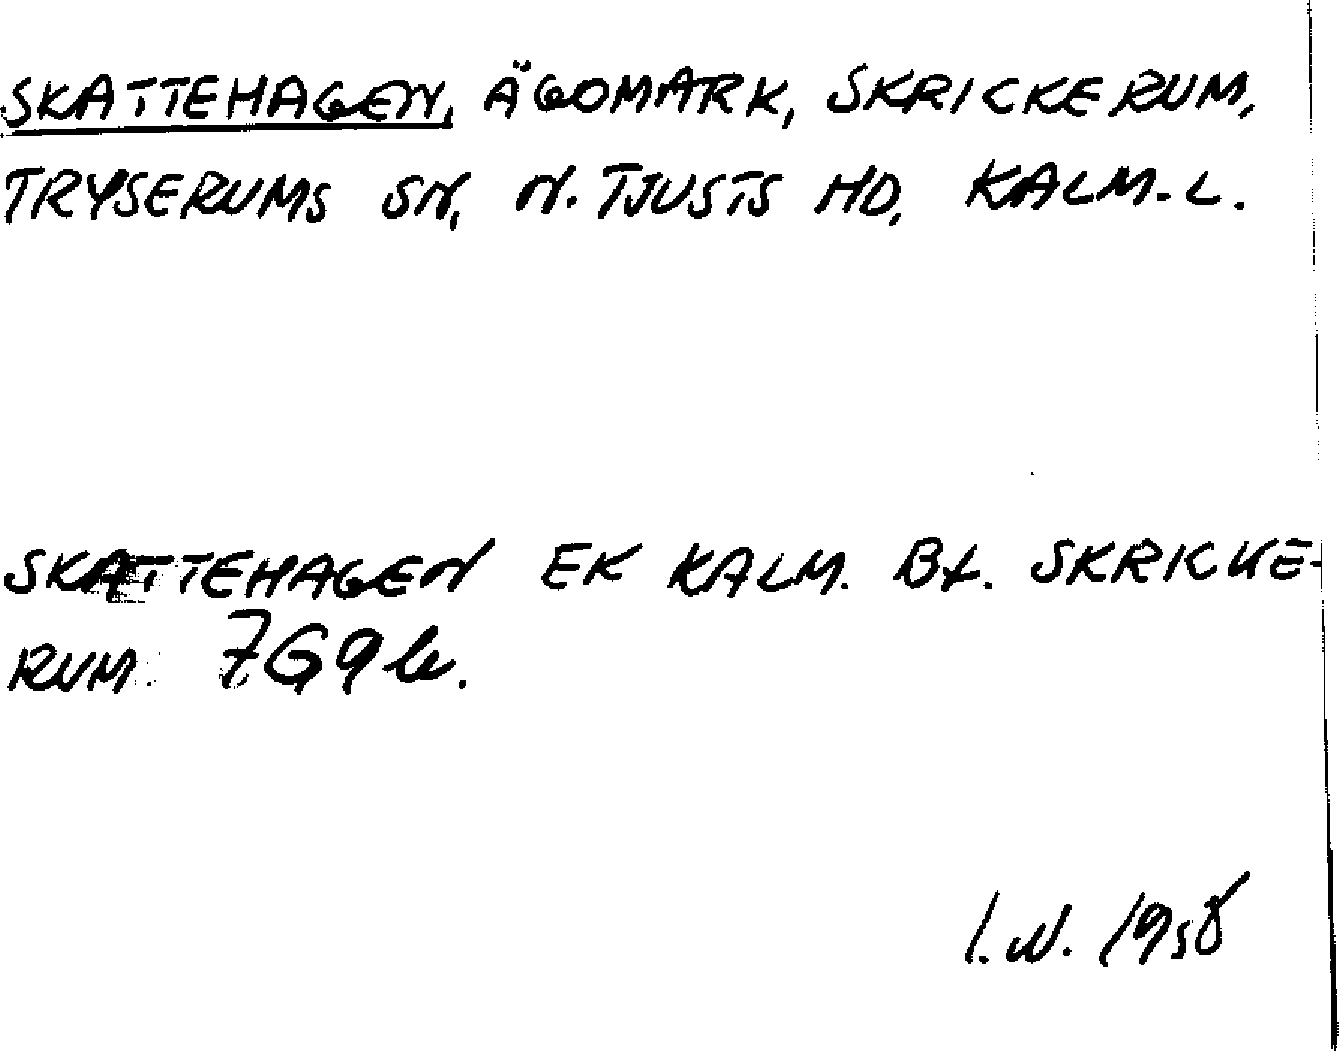 SKATTEHAGEN, ÄGOMARK, SKRICKERUM,
TRYSERUMS SN, N. TJUSTS HD, KALM. L.
SKATTEHAGEN EK KALM. BL. SKRICKE-
RUM 7G9b.
I.N. 1958